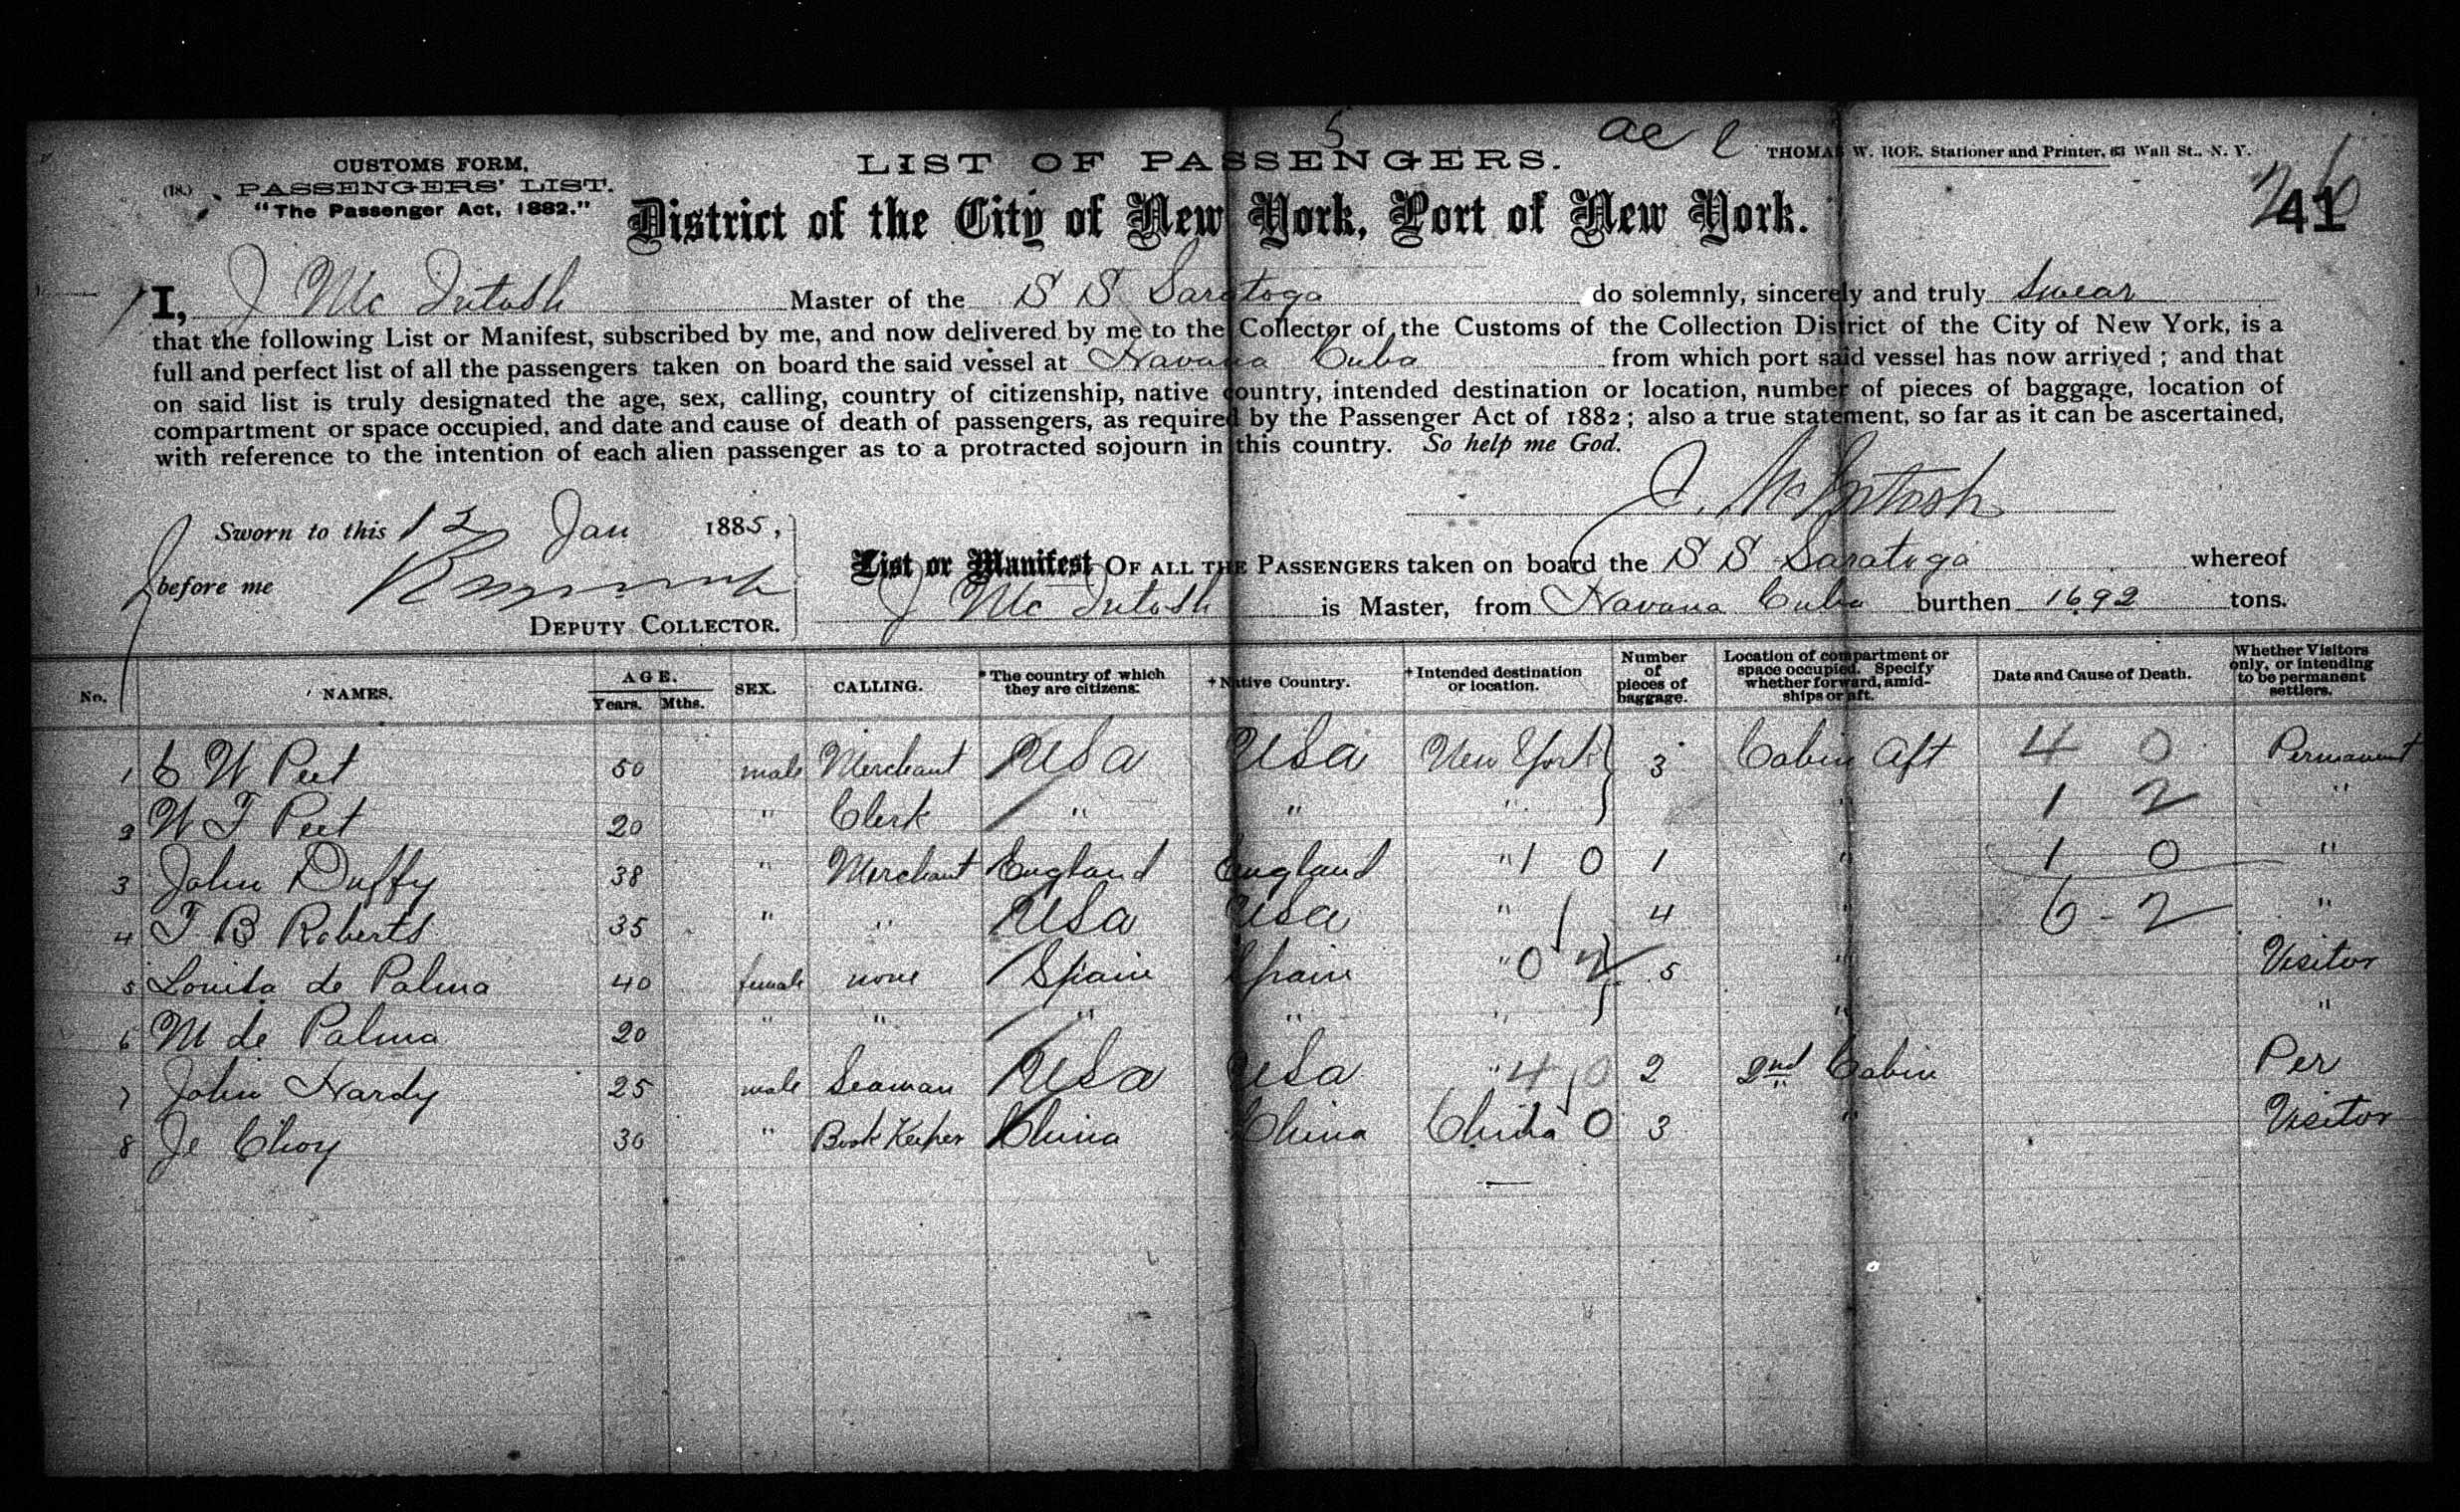 5 ae l
CUSTOMS FORM,
LIST OF PASSENGERS.
THOMAS W. ROE. Stationer and Printer, 63 Wall St., N. Y.
(18.) PASSENGERS' LIST.
"The Passenger Act, 1882."
District of the City of New York, Port of New York.
26
41
I, J Mc Intosh Master of the S S Saratoga do solemnly, sincerely and truly swear
that the following List or Manifest, subscribed by me, and now delivered by me to the Collector of the Customs of the Collection District of the City of New York, is a
full and perfect list of all the passengers taken on board the said vessel at Havana Cuba from which port said vessel has now arrived ; and that
on said list is truly designated the age, sex, calling, country of citizenship, native country, intended destination or location, number of pieces of baggage, location of
compartment or space occupied, and date and cause of death of passengers, as required by the Passenger Act of 1882 ; also a true statement, so far as it can be ascertained,
with reference to the intention of each alien passenger as to a protracted sojourn in this country. So help me God.
J. McIntosh
Sworn to this 12 Jan 1885,
before me
DEPUTY COLLECTOR.
List or Manifest OF ALL THE PASSENGERS taken on board the S S Saratoga whereof
J Mc Intosh is Master, from Havana Cuba burthen 1692 tons.
No. NAMES. AGE. Years. Mths. SEX. CALLING. The country of which they are citizens. Native Country. Intended destination or location. Number of pieces of baggage. Location of compartment or space occupied. Specify whether forward, amidships or aft. Date and Cause of Death. Whether Visitors only, or intending to be permanent settlers.
1 C W Peet 50 male Merchant USa USa New York 3 Cabin Aft 4 0 Permanent
2 W F Peet 20 " Clerk " " " " 1 2 "
3 John Duffy 38 " Merchant England England " 1 0 1 " 1 0 "
4 F B Roberts 35 " " USa USa " 4 " 6 - 2 "
5 Louisa de Palma 40 female none Spain Spain " 0 2 5 " Visitor
6 M de Palma 20 " " " " " " "
7 John Hardy 25 male Seaman USa USa " 4 0 2 2nd Cabin Per
8 Je Choy 30 " Book Keeper China China China 0 3 " Visitor